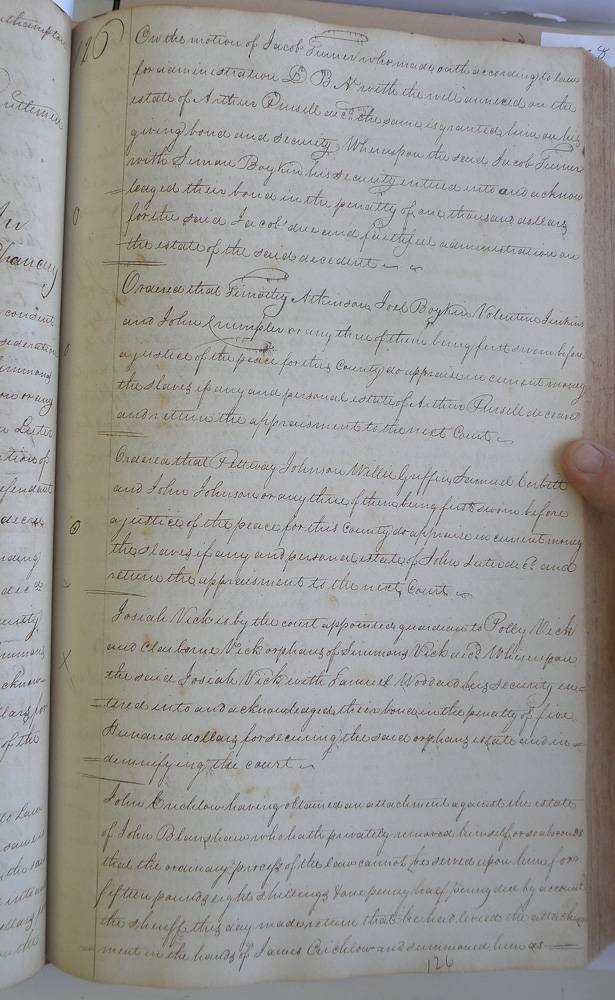 126
On the motion of Jacob Turner who made oath according to law
for administration D. B. N. with the will annexed on the
estate of Arthur Pursell decd. the same is granted him on his
giving bond and security Whereupon the said Jacob Turner
with Simon Boykin his security entered into and acknow
ledged their bond in the penalty of one thousand dollars
for the said Jacob's due and faithful administration on
the estate of the said decedent
Ordered that Timothy Atkinson, Joel Boykin Valentine Jenkins
and John Crumpler or any three of them being first sworn before
a justice of the peace for this County do appraise in current money
the slaves if any and personal estate of Arthur Pursell deceased
and return the appraisment to the next Court
Ordered that Pettway Johnson Willie Griffin, Samuel Corbett
and John Johnson or any three of them being first sworn before
a justice of the peace for this County do appraise in current money
the slaves if any and personal estate of John decd. and
return the appraisment to the next Court
Josiah Vick is by the court appointed guardian to Polly Vick
and Claiborne Vick orphans of Simmons Vick decd. Whereupon
the said Josiah Vick with Samuel his security en=
=tered into and acknowledged their bond in the penalty of five
Hundred dollars for securing the said orphans estate and in=
=demnifying the court
John Crichlow having obtained an attachment against the estate
of John Blanshaw who hath privately removed himself or so absconds
that the ordinary process of the law cannot be served upon him for
fifteen pounds eight shillings & one penny half penny due by account
the sheriff this day made return that he had levied the attach=
ment in the hands of James Crichlow and summoned him as
126